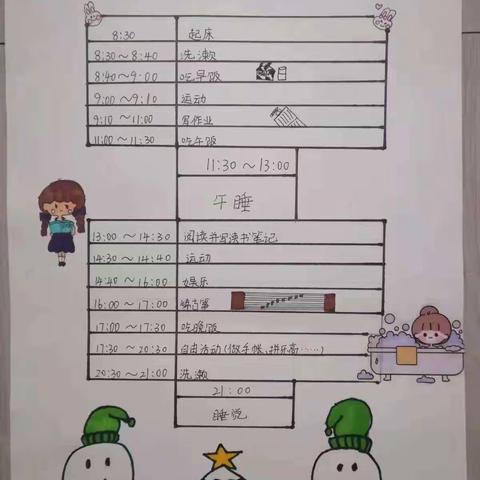 8:30 起床
8:30～8:40 洗漱
8:40～9:00 吃早饭
9:00～9:10 运动
9:10～11:00 写作业
11:00～11:30 吃午饭
11:30～13:00
午睡
13:00～14:30 阅读并写读书笔记
14:30～14:40 运动
14:40～16:00 娱乐
16:00～17:00 练古筝
17:00～17:30 吃晚饭
17:30～20:30 自由活动(做手帐、拼乐高……)
20:30～21:00 洗漱
21:00
睡觉